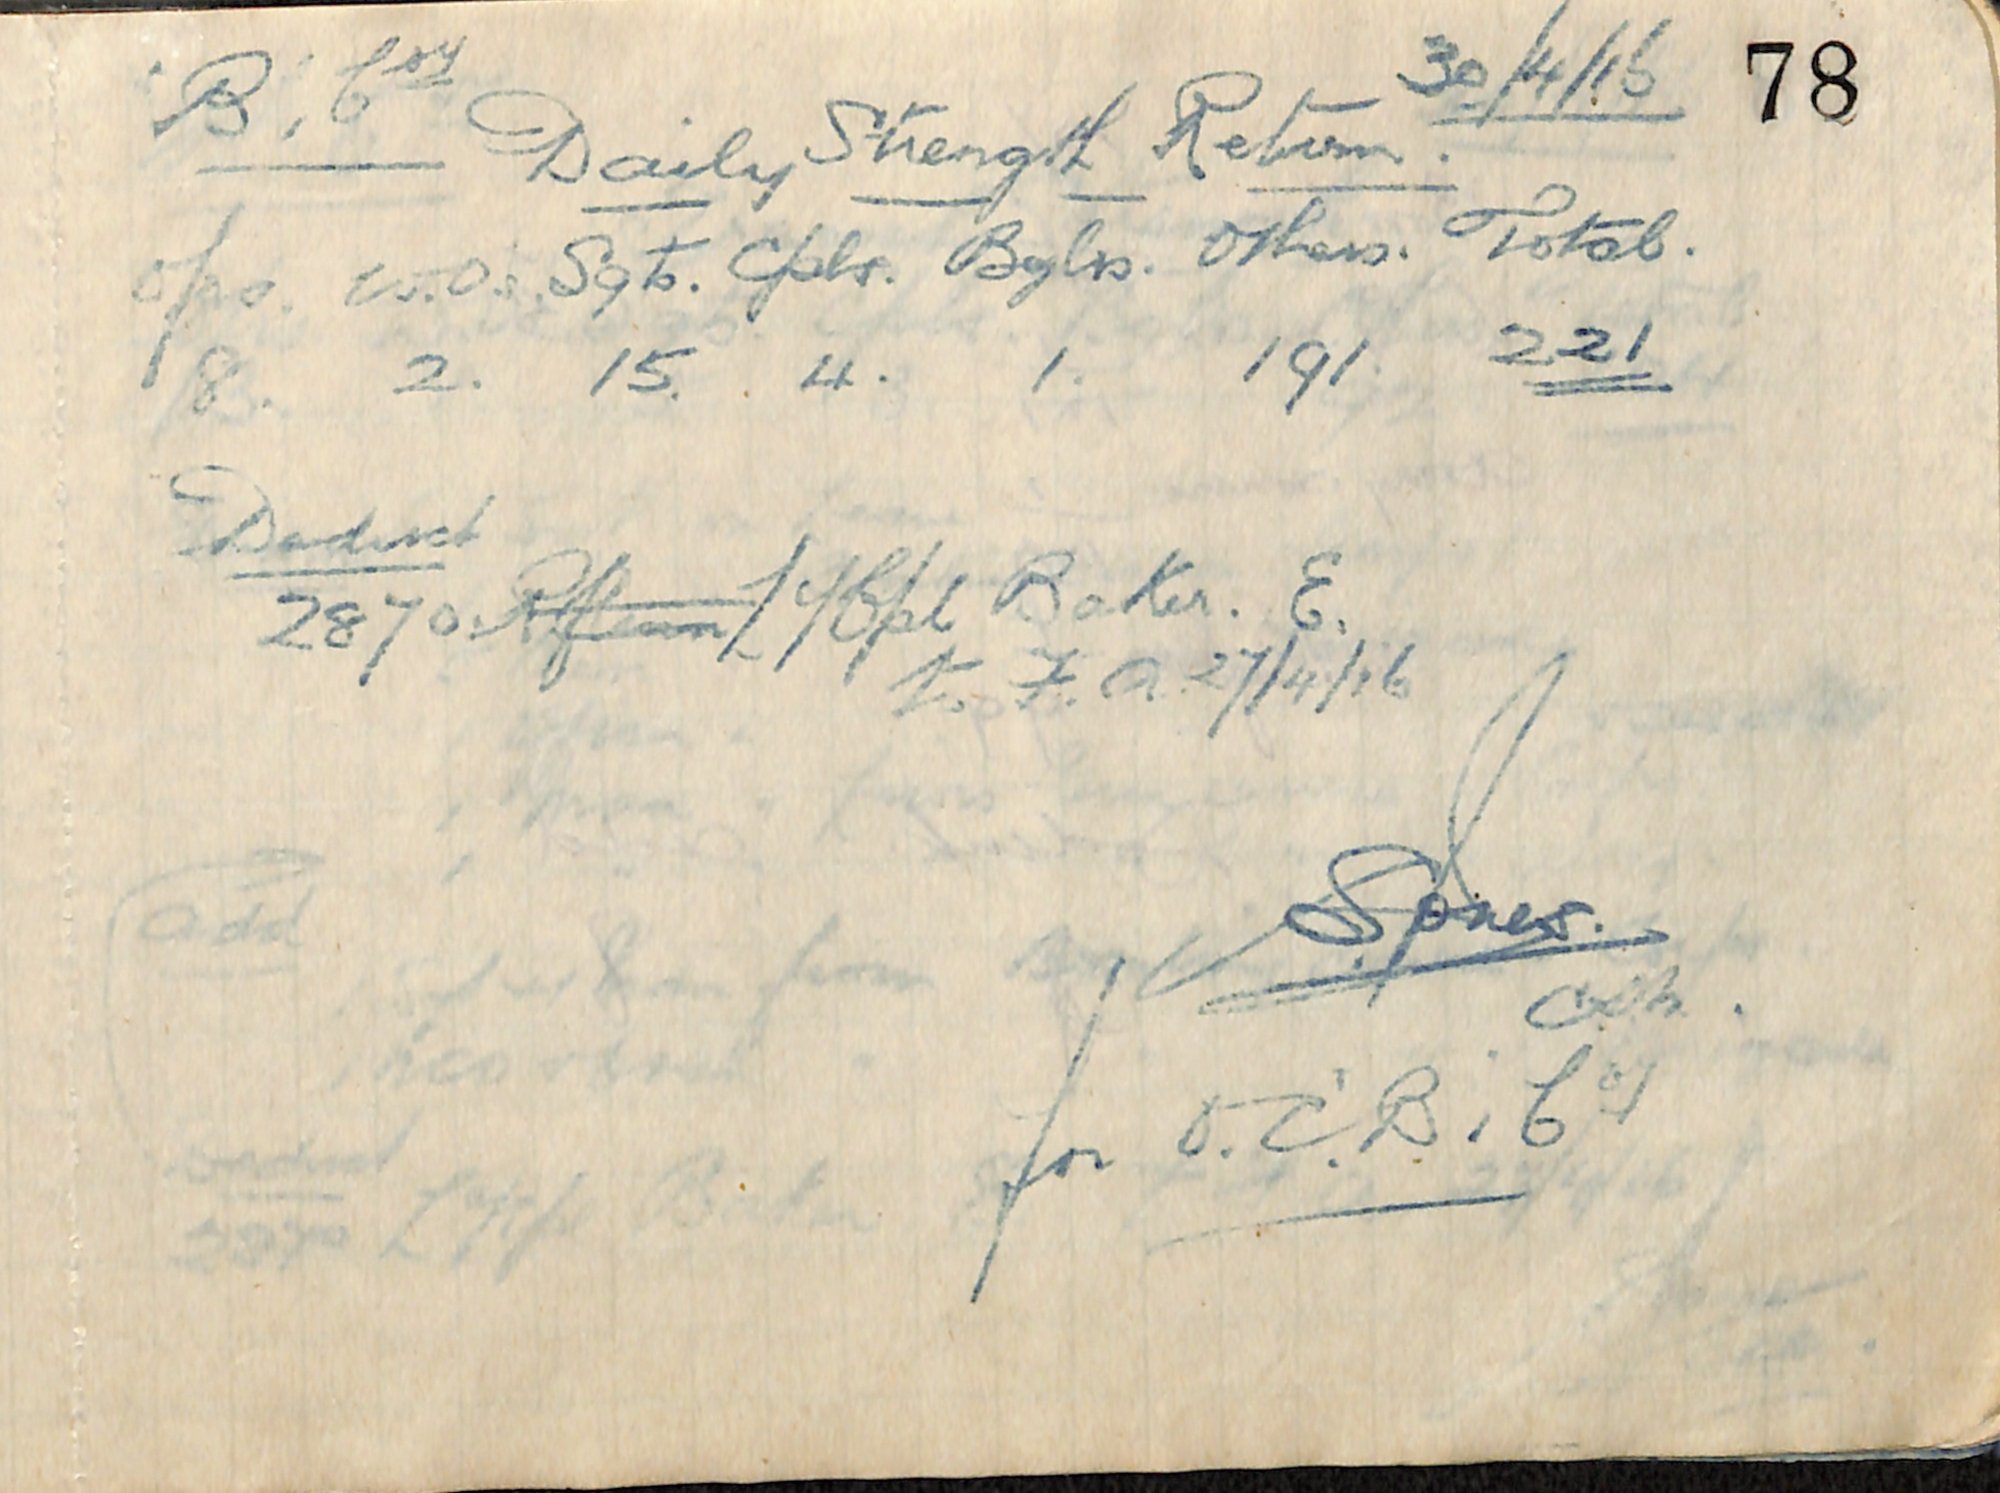 'B' Coy Daily Strength Return. 30/4/16 78
O/rs. W.O's. Sgts. Cpls. Bglrs. Others. Total.
8. 2. 15. 4. 1. 191. 221
Deduct
2870. Rifleman L/Cpl Baker. E.
to F. A. 27/4/16
Add
SJones.
for O.C. 'B' Coy
Deduct
2870 L/Cpl Baker